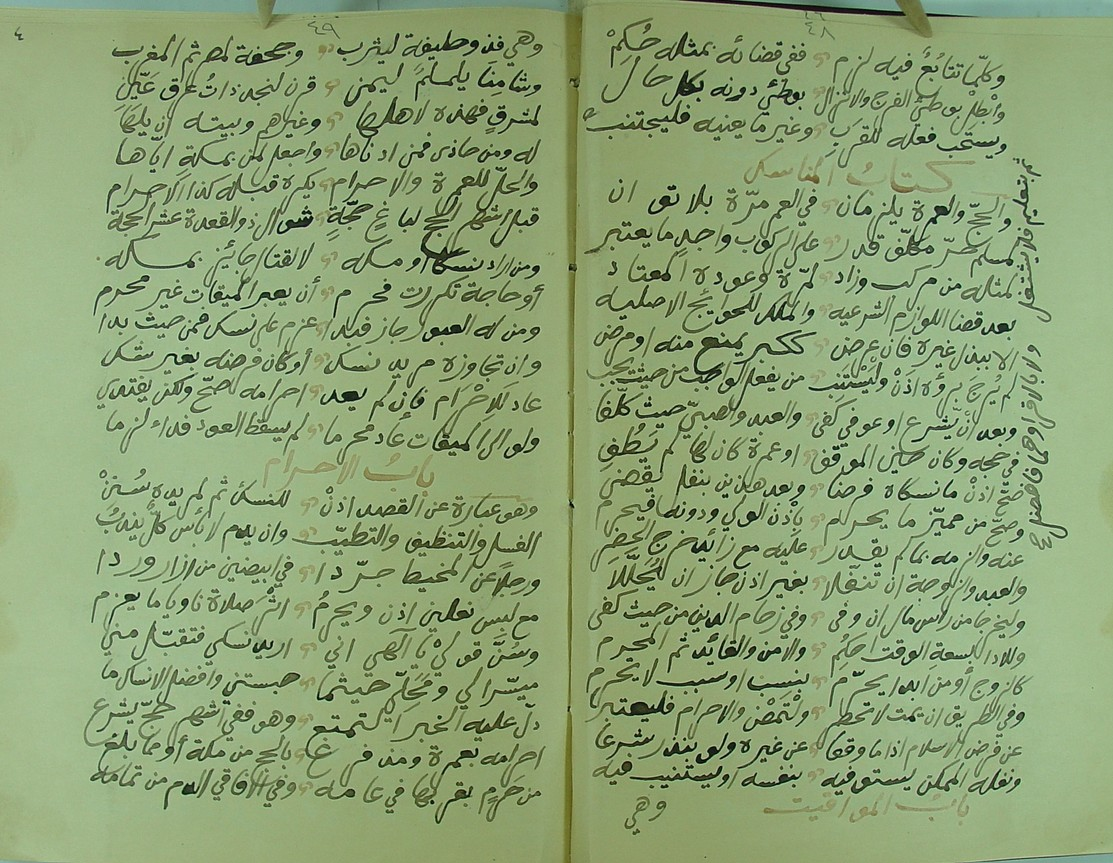 ٤٨
وكلّما تتابُعٌ فيه لزم ففي قضائه بمثله حُكِمْ
وأبطلْ بوطئ الفرج والانزال بوطئ دونه بكل حال
ويستحب فعله للقرب وغير ما يعنيه فليجتنب
كتابُ المناسك
والحجّ والعمرة يلزمان في العمر مرّة بلا توان
لمسلم حرّ مكلّف قدر على الركوب واجد ما يعتبر
لمثله من مركب وزاد لمرّة وعودة المعتاد
بعد قضا اللوازم الشرعيه والملك للحوائج الاصليه
الا يبذل غيره فان عرض ككبر يمنع منه او مرض
لم يُرج برؤه اذنْ وليستنب من يفعل الواجب من حيث يجب
وبعد أن يشرع او عوفي كفى والعبد والصبيّ حيث كلّفا
في حجه وكان حين الموقف او عمرة كان لها لم يَطُفِ
صحّ اذنْ ما نسكاه فرضا وبعد هذين بنفل يقضى
وصحّ من مميّز ما يحرم بإذن الولي ودونه فيحرم
عنه والزمه بما لم يقدر عليه مع زائد خرج الحضر
والعبد والزوجة ان تنفّلا بغير اذن جاز ان يُحَلَّلا
وليخرجا من رأس مال ان وفى وفي زحام الدين من حيث كفى
وللادا السعة الوقت احكُمِ والامن والقائد ثم المحرم
كالزوج أو من ابدا يحرّم بنسب او سبب لا يحرم
وفي الطريق ان تمت لا تحط ولتمض والاحرام فليعتبر
عن فرض الاسلام اذا ما وقعا عن غيره ولو بنذر شرعا
ونفله الممكن يستوفيه بنفسه او يستنيب فيه
بابُ المواقيت
وهي
٤٩
وهي قرن وحليفة ليثرب وجحفة لمصر ثم المغرب
وشامنا يلملمٌ ليمن قرن لنجد ذاتُ عرق عَيّنِ
لمشرقٍ فهذه لاهلها وغيرهم وبيته ان يلها
له ومن حاذى فمن ادناها واجعل لمن بمكة اياها
والحلّ للعمرة والاحرام يكره قبله كذا الاحرام
قبل اشهر الحج لباغ حجّةِ شوال ذو القعدة عشر الحجة
ومن اراد نسكا او مكه لا لقتال جائز بمكه
أو حاجة تكررت فحرم أن يعبر الميقات غير محرم
ومن له العبور جاز فبدا عزم على نسك فمن حيث بدا
وان تجاوزه مريد نسك أو كان فرضه بغير شك
عاد للاحرام فإن لم يعد احرامه صحّ ولكن يفتدي
ولو الى الميقات عاد محرما لم يسقط العود فداء لزما
بابُ الاحرام
وهو عبارة عن القصد اذنْ للنسك ثم لمريده سُنَنْ
الغسل والتنظيف والتطيّب وان يدم لا بأس كلّ يندبُ
ورجلاً عن المخيط جرّدا في ابيضين من إزار وردا
مع لبس نعلين اذن ويحرمُ اثر صلاة ناويا ما يعزم
وسُنّ قوليْ يا الهي اني اريد نسكي فتقبّل مني
ميسّرا لي ومَحِلّي حيثما حبستني وافضل الانساك ما
دلّ عليه الخبر التمتع وهو ففي اشهر حج يشرع
احرامه بعمرة ومن فرغ بالحج من مكة أو ما بلغ
من حرمٍ بقربها في عامه وفي الآفاقي الدم من تمامه